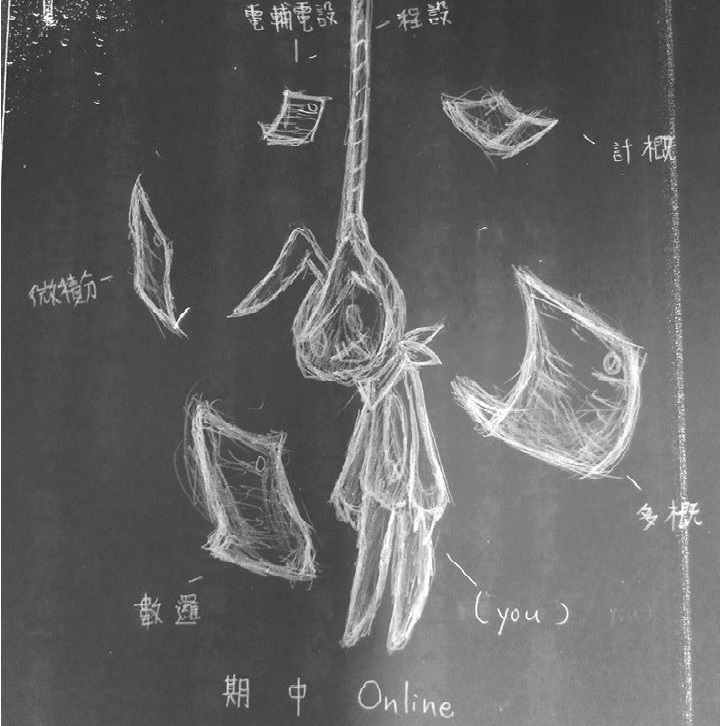 電輔電設
程設
計概
微積分
多概
數邏
(you)
期中 Online